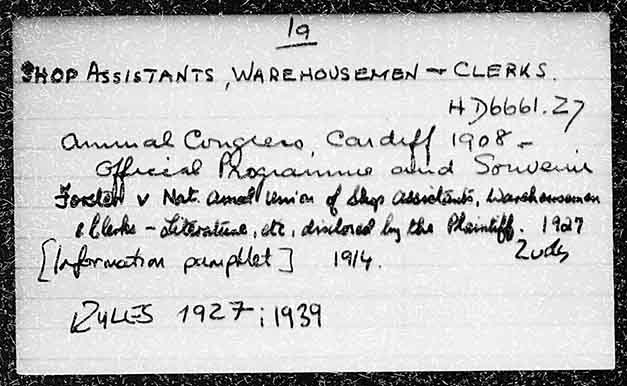 1a
SHOP ASSISTANTS, WAREHOUSEMEN + CLERKS.
HD6661.Z7
Annual Congress, Cardiff 1908 -
Official Programme and Souvenir
v Nat. Amal Union of Shop Assistants, Warehousemen
& Clerks - Literature, etc, disclosed by the Plaintiff. 1927
2 vols
[Information pamphlet] 1914.
RULES 1927; 1939